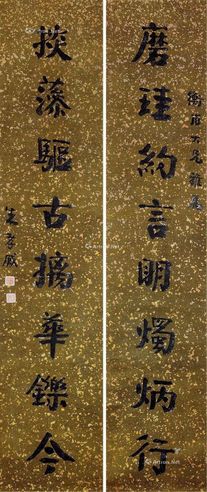 衡甫大兄雅屬
磨珪約言明燭炳行
掞藻驅古摛華鑠今
朱孝臧